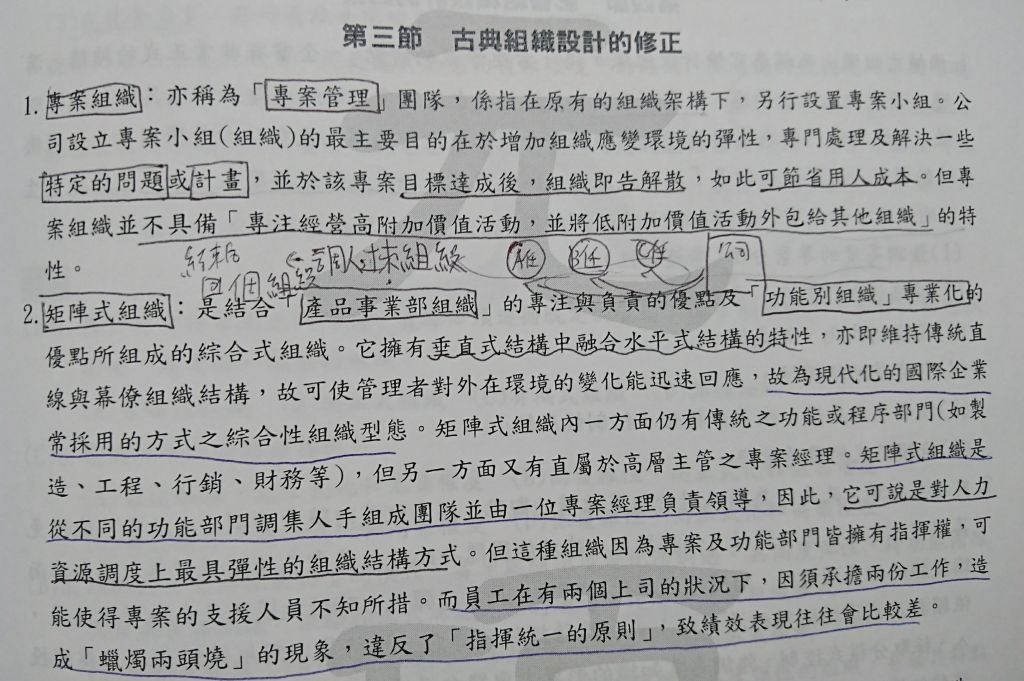 第三節　古典組織設計的修正
1. 專案組織：亦稱為「專案管理」團隊，係指在原有的組織架構下，另行設置專案小組。公
司設立專案小組(組織)的最主要目的在於增加組織應變環境的彈性，專門處理及解決一些
特定的問題或計畫，並於該專案目標達成後，組織即告解散，如此可節省用人成本。但專
案組織並不具備「專注經營高附加價值活動，並將低附加價值活動外包給其他組織」的特
性。
結束後
回個組織
←調人過來組織
A任
B任
C任
公司
2. 矩陣式組織：是結合「產品事業部組織」的專注與負責的優點及「功能別組織」專業化的
優點所組成的綜合式組織。它擁有垂直式結構中融合水平式結構的特性，亦即維持傳統直
線與幕僚組織結構，故可使管理者對外在環境的變化能迅速回應，故為現代化的國際企業
常採用的方式之綜合性組織型態。矩陣式組織內一方面仍有傳統之功能或程序部門(如製
造、工程、行銷、財務等)，但另一方面又有直屬於高層主管之專案經理。矩陣式組織是
從不同的功能部門調集人手組成團隊並由一位專案經理負責領導，因此，它可說是對人力
資源調度上最具彈性的組織結構方式。但這種組織因為專案及功能部門皆擁有指揮權，可
能使得專案的支援人員不知所措。而員工在有兩個上司的狀況下，因須承擔兩份工作，造
成「蠟燭兩頭燒」的現象，違反了「指揮統一的原則」，致績效表現往往會比較差。